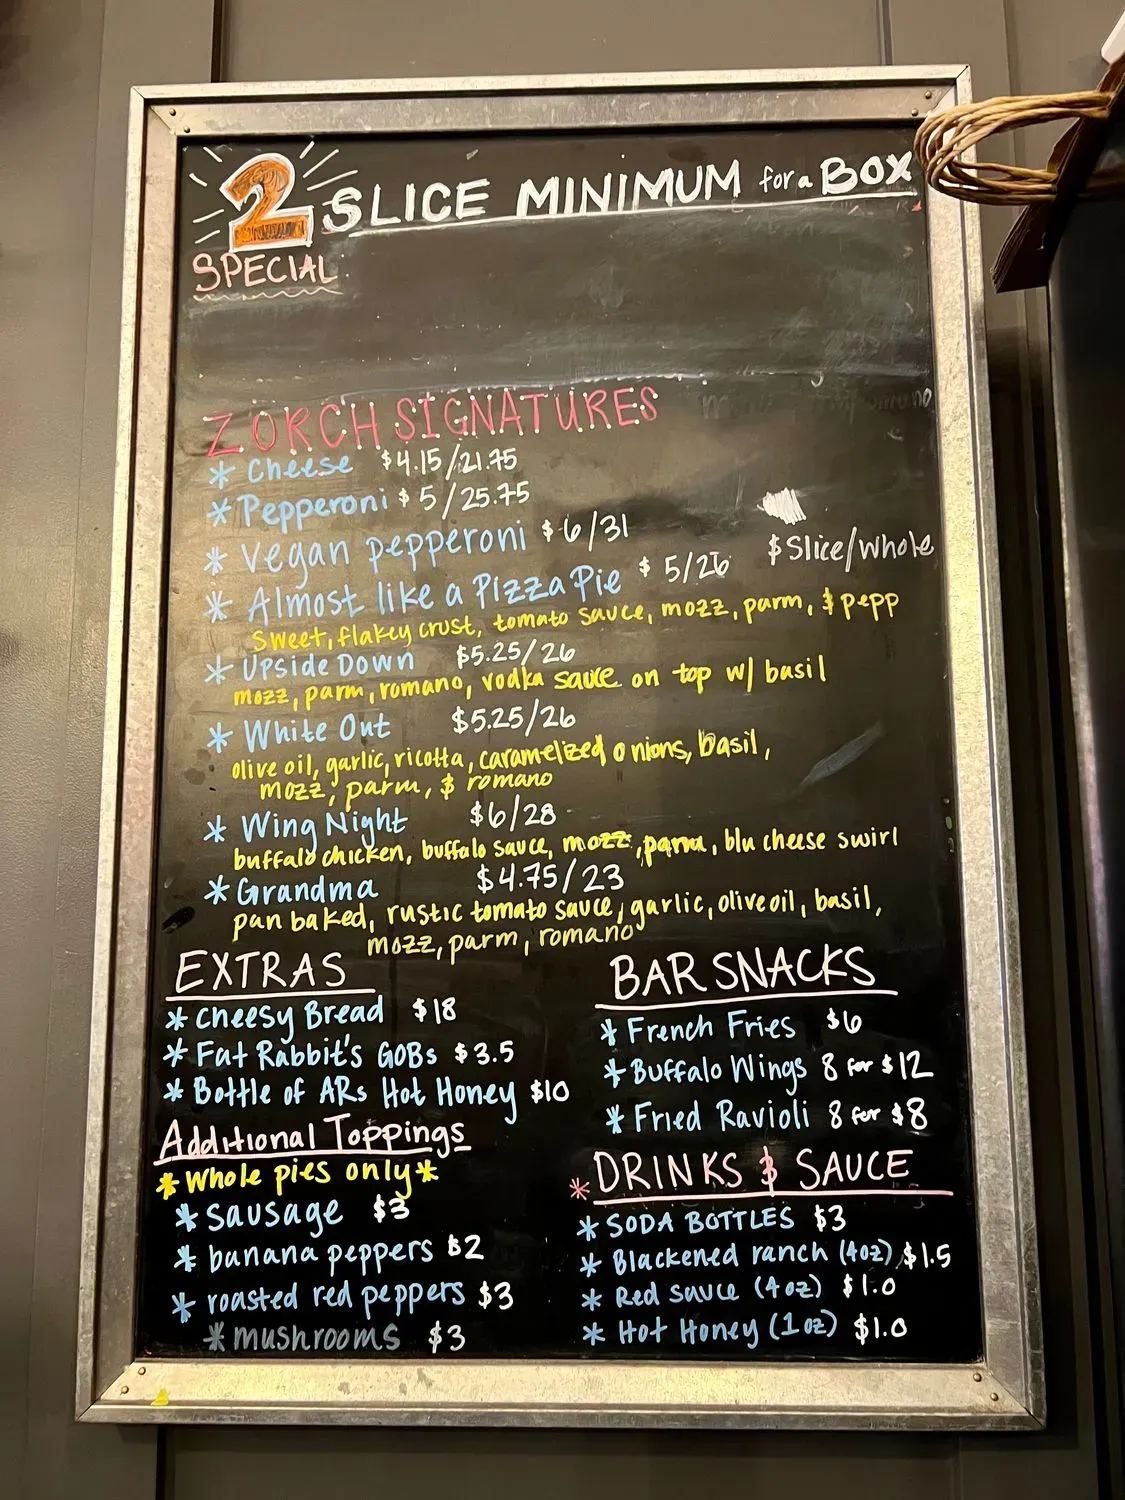 2 SLICE MINIMUM for a BOX
SPECIAL
ZORCH SIGNATURES
* Cheese $4.15/21.75
* Pepperoni $5/25.75
* Vegan pepperoni $6/31
$Slice/whole
* Almost like a Pizza Pie $5/26
Sweet, flakey crust, tomato sauce, mozz, parm, & pepp
* Upside Down $5.25/26
mozz, parm, romano, vodka sauce on top w/ basil
* White Out $5.25/26
olive oil, garlic, ricotta, caramelized onions, basil,
mozz, parm, & romano
* Wing Night $6/28
buffalo chicken, buffalo sauce, mozz, parm, blu cheese swirl
* Grandma $4.75/23
pan baked, rustic tomato sauce, garlic, olive oil, basil,
mozz, parm, romano
EXTRAS
* Cheesy Bread $18
* Fat Rabbit's GOBs $3.5
* Bottle of ARs Hot Honey $10
Additional Toppings
*whole pies only*
* sausage $3
* banana peppers $2
* roasted red peppers $3
* mushrooms $3
BAR SNACKS
* French Fries $6
* Buffalo Wings 8 for $12
* Fried Ravioli 8 for $8
* DRINKS & SAUCE
* SODA BOTTLES $3
* Blackened ranch (4oz) $1.5
* Red sauce (4oz) $1.0
* Hot Honey (1oz) $1.0